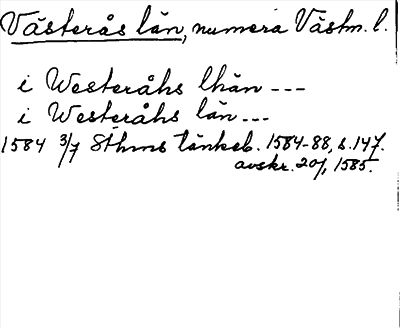 Västerås län, numera Västm. l.
i Westeråhs lhän ---
i Westeråhs län ---
1584 3/7 Sthms tänkeb. 1584-88, s. 147.
avskr. 20/, 1585.